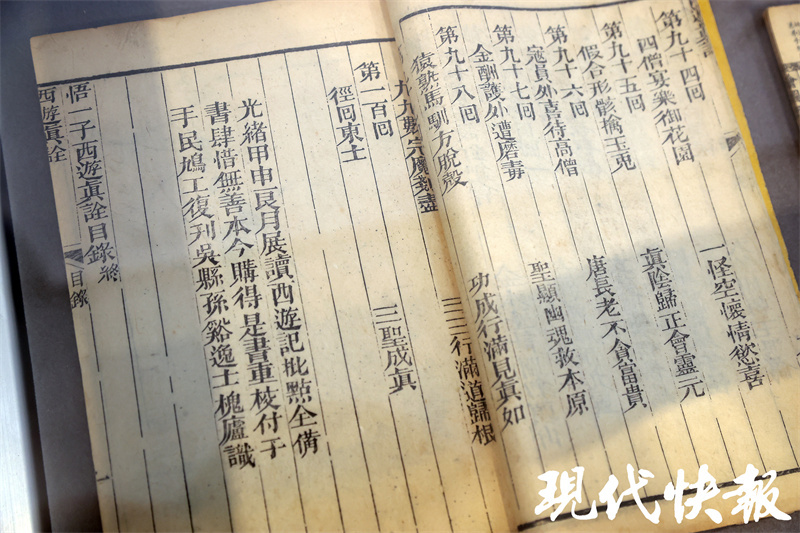 第九十四回
四僧宴樂御花園 一怪空懷情慾喜
第九十五回
假合形骸擒玉兎 眞陰歸正會靈元
第九十六回
寇員外喜待高僧 唐長老不貪富貴
第九十七回
金酬護外遭磨毒 聖顯幽魂救本原
第九十八回
猿熟馬馴方脫殼 功成行滿見眞如
九九數完魔剗盡 三三行滿道歸根
第一百回
徑回東土 三聖成眞
光緒甲申艮月展讀西遊記批點全備
書肆惜無善本今購得是書重校付于
手民鳩工復刋吳縣孫谿逸士槐廬識
悟一子西遊眞詮目錄終
西遊眞詮 目錄
現代快報